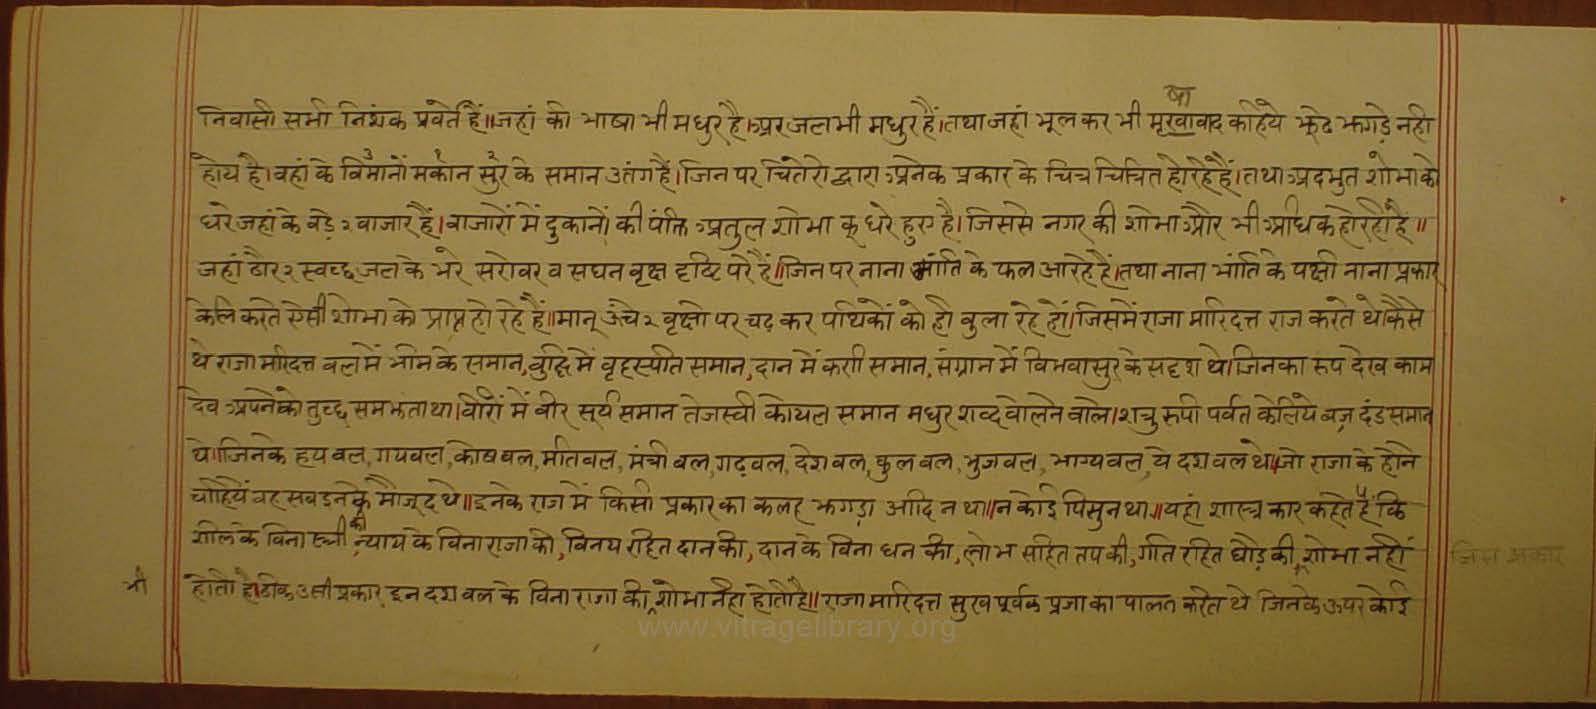 षा
निवासी सभी निशंक प्रवर्ते हैं॥जहां की भाषा भी मधुर है।अर जल भी मधुर हैं।तथा जहां भूल कर भी मृखावाद कहिये झूठ झगड़े नही
होय है।वहां के विमानों मकान सुर के समान उतंग हैं।जिन पर चितेरो द्वारा अनेक प्रकार के चित्र चित्रित हो रहे हैं।तथा अदभुत शोभा को
धरे जहां के बड़े २ बाजार हैं।बाजारों में दुकानों की पंक्ति अतुल शोभा कू धरे हुए है।जिससे नगर की शोभा और भी अधिक हो रही है॥
जहां ठौर २ स्वच्छ जल के भरे सरोवर व सघन वृक्ष दृष्टि परे हैं॥जिन पर नाना भांति के फल आ रहे हैं।तथा नाना भांति के पक्षी नाना प्रकार
केलि करते ऐसी शोभा को प्राप्त हो रहे हैं॥मानू ऊंचे २ वृक्षो पर चढ कर पथिकों को ही वुला रहे हों।जिसमें राजा मारिदत्त राज करते थे।कैसे
थे राजा मारिदत्त वल में भीम के समान,वुद्धि में वृहस्पति समान,दान में कर्ण समान,संग्राम में विभवासुर के सदृश थे।जिनका रूप देख काम
देव अपने को तुच्छ समझता था।वीरों में वीर सूर्य समान तेजस्वी कोयल समान मधुर शव्द वोलने वाले।शत्रु रूपी पर्वत के लिये वज्र दंड समान
थे।जिनके हयवल,गयवल,कोषवल,मतिवल,मंत्री वल,गढ़वल,देशवल,कुलवल,भुजवल,भाग्यवल,ये दश वल थे।जो राजा के होने
चाहियें वह सव इनके मौजूद थे॥इनके राज में किसी प्रकार का कलह झगड़ा आदि न था॥न कोई पिसुन था॥यहां शास्त्र कार कहते हैं कि
शील के विना स्त्री की,न्याय के विना राजा की,विनय रहित दान की,दान के विना धन की,लोभ सहित तप की,गति रहित घोड़े की,शोभा नहीं
जिस प्रकार
होती है।ठीक उसी प्रकार इन दश वल के विना राजा की शोभा नही होती है॥राजा मारिदत्त सुख पूर्वक प्रजा का पालन करते थे जिनके ऊपर कोई
भी
www.vitragelibrary.org